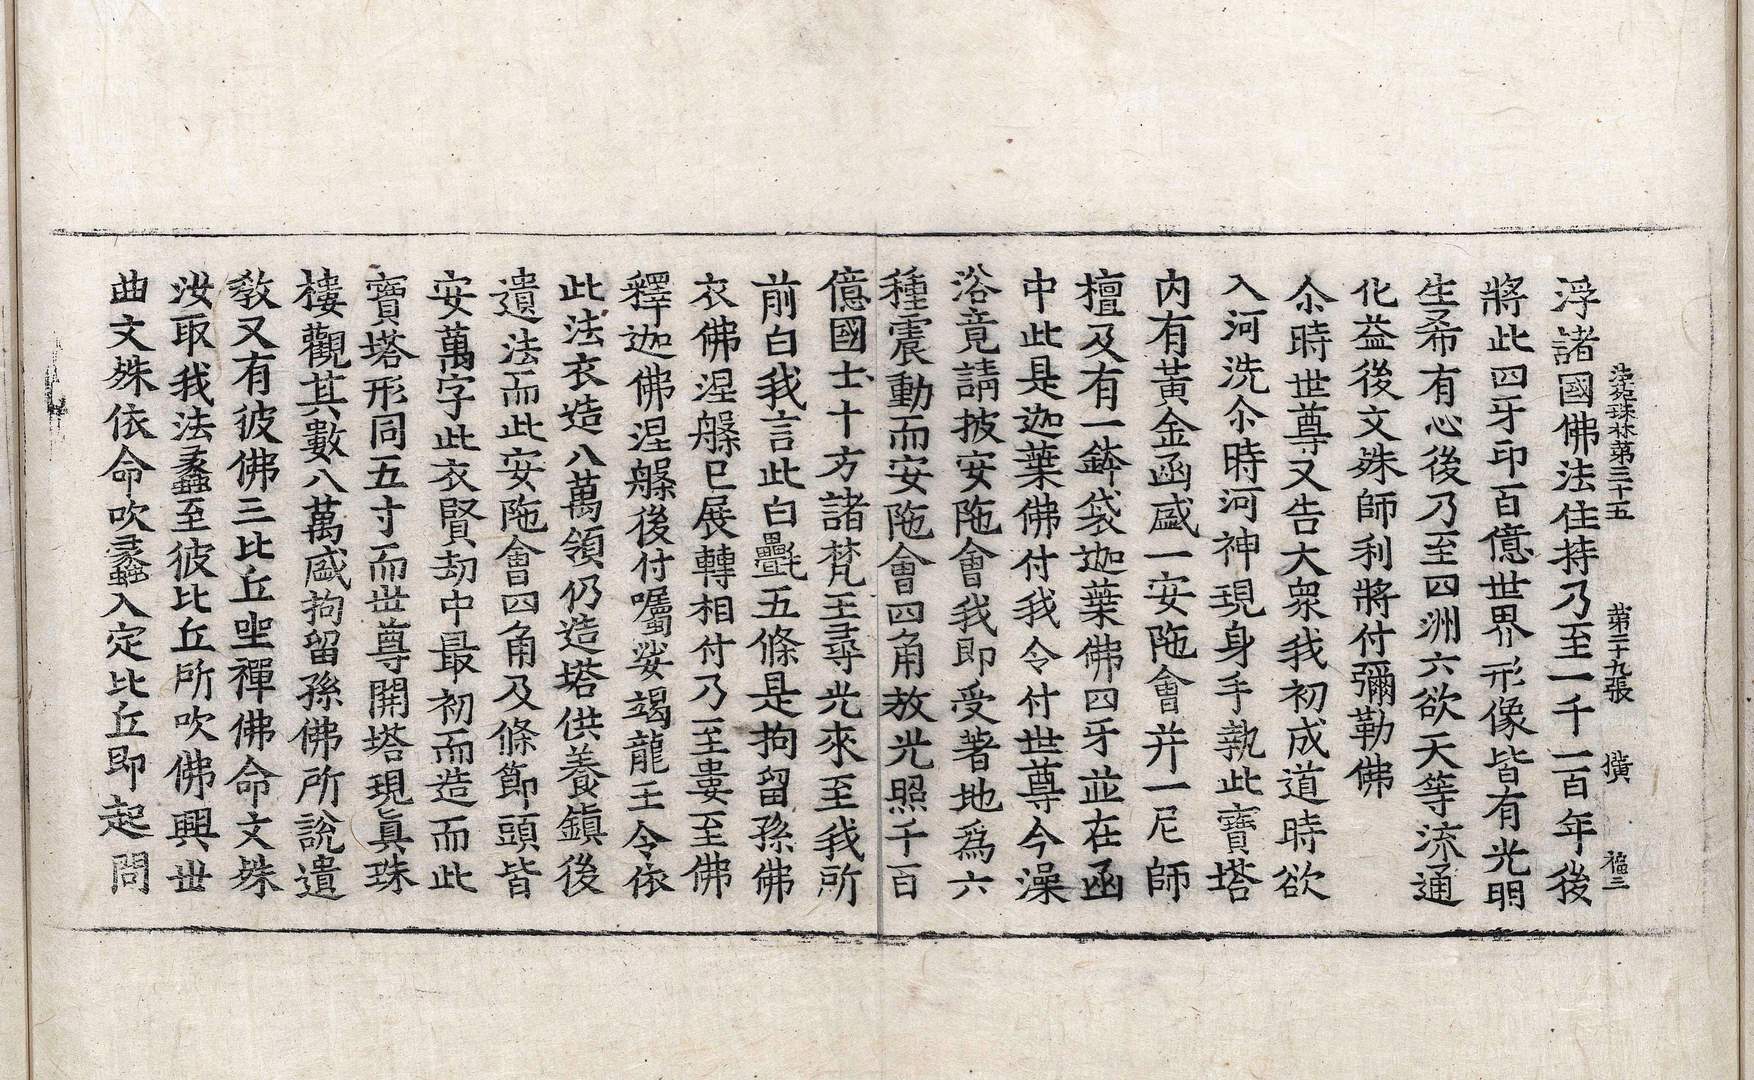 法苑珠林第三十五　第二十九張　橫　福三
浮諸國佛法住持乃至一千一百年後
將此四牙印百億世界形像皆有光明
生希有心後乃至四洲六欲天等流通
化益後文殊師利將付彌勒佛
尒時世尊又告大衆我初成道時欲
入河洗尒時河神現身手執此寶塔
内有黃金函盛一安陁會并一尼師
檀及有一鉢袋迦葉佛四牙並在函
中此是迦葉佛付我令付世尊今澡
浴竟請披安陁會我即受著地爲六
種震動而安陁會四角放光照千百
億國土十方諸梵王尋光來至我所
前白我言此白㲲五條是拘留孫佛
衣佛涅槃已展轉相付乃至婁至佛
釋迦佛涅槃後付囑娑竭龍王令依
此法衣造八萬領仍造塔供養鎮後
遺法而此安陁會四角及條節頭皆
安萬字此衣賢劫中最初而造而此
寶塔形同五寸而世尊開塔現眞珠
樓觀其數八萬盛拘留孫佛所說遺
敎又有彼佛三比丘坐禪佛命文殊
汝取我法蠡至彼比丘所吹佛興世
曲文殊依命吹蠡入定比丘即起問